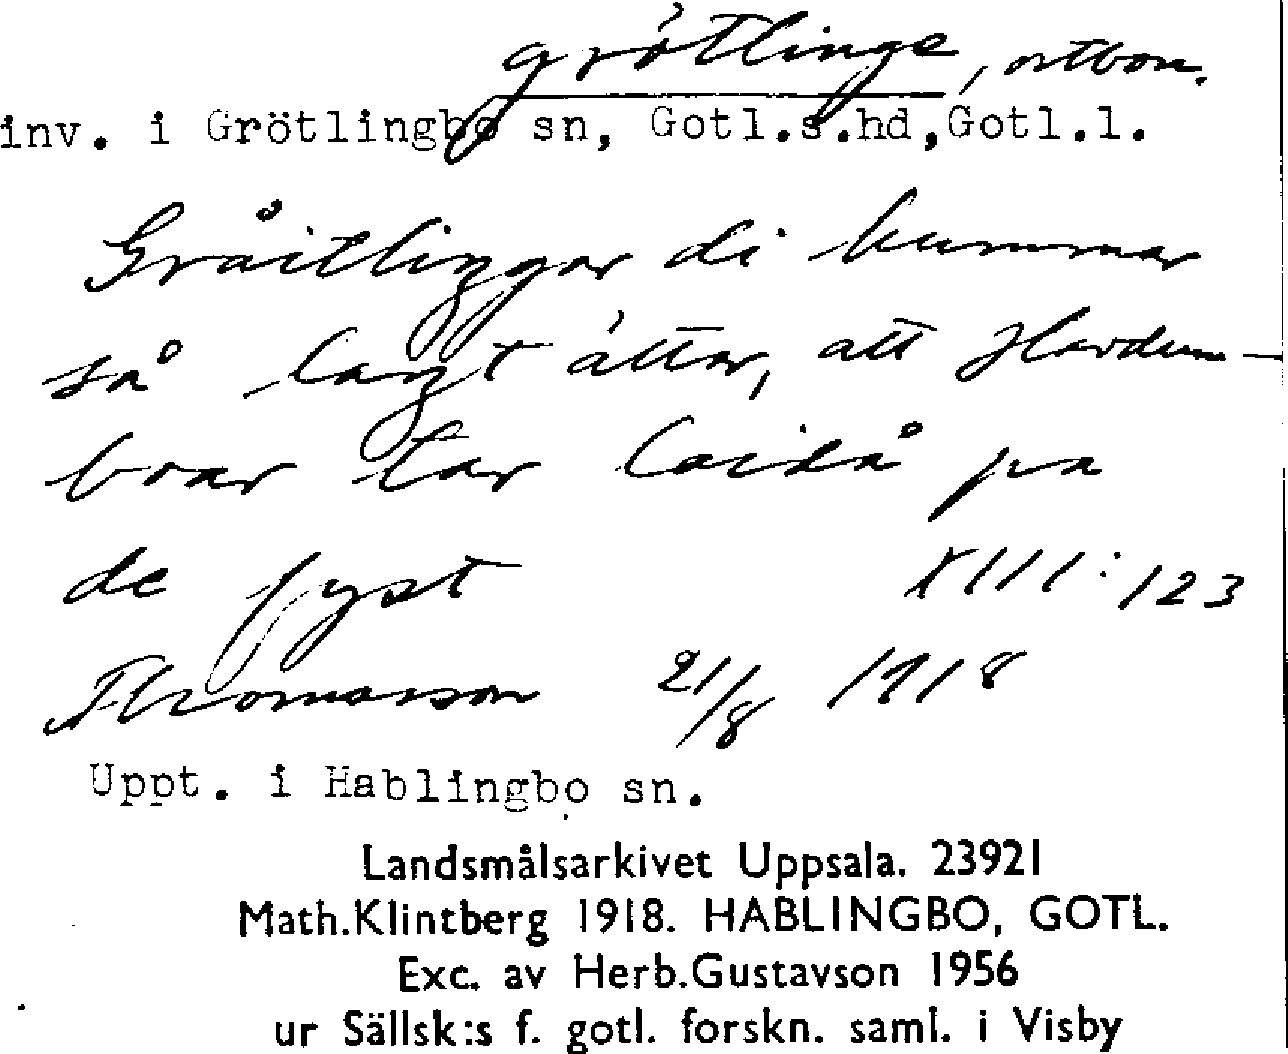 grötlinge, ortbon.
inv. i Grötlingbo sn, Gotl.s.hd,Gotl.l.
Gråitlingar di kummar
så langt åttar, att Havdum-
boar tar laidå pa
de fyst XIII:123
Thomasson 21/8 1918
Uppt. i Hablingbo sn.
Landsmålsarkivet Uppsala. 23921
Math.Klintberg 1918. HABLINGBO, GOTL.
Exc. av Herb.Gustavson 1956
ur Sällsk:s f. gotl. forskn. saml. i Visby